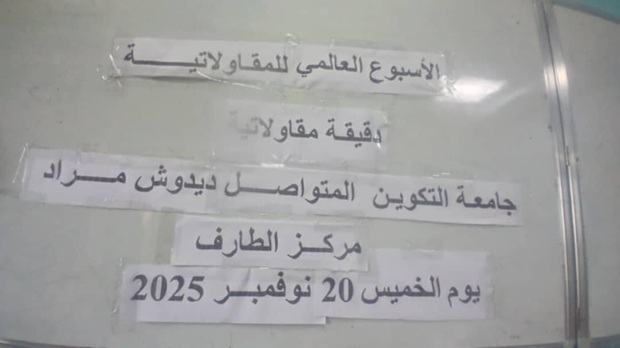 الأسبوع العالمي للمقاولاتيـــــة
دقيقة مقاولاتية
جامعة التكوين المتواصل ديدوش مراد
مركز الطارف
يوم الخميس 20 نوفمبر 2025